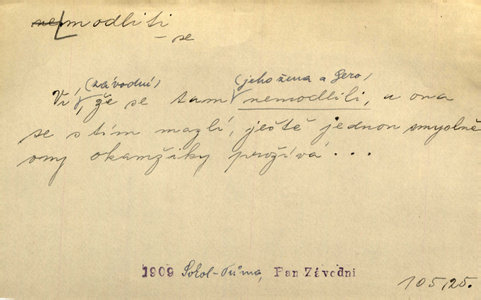 nemodliti
- se
(závodní) (jeho žena a Gero)
Ví, že se tam nemodlili, a ona
se s tím mazlí, ještě jednou smyslně
ony okamžiky prožívá...
1909 Sokol-Tůma, Pan Závodní
105/25.